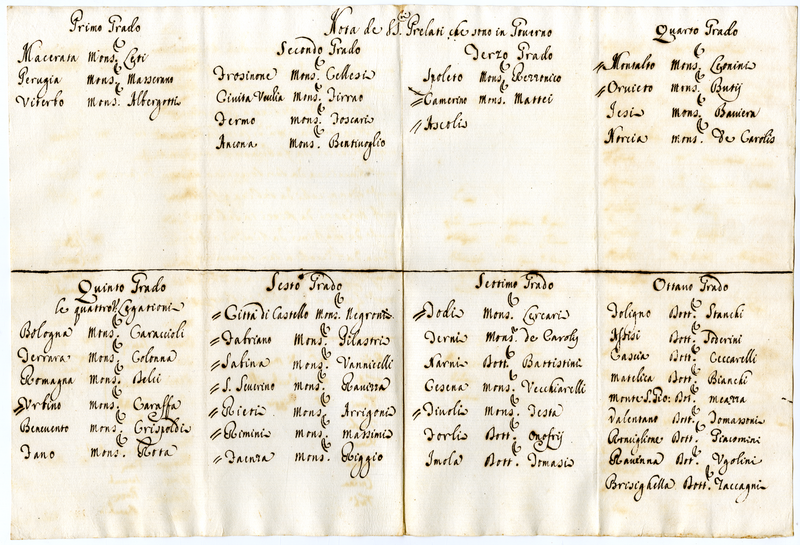 Nota de SS.ri Prelati che sono in Governo
Primo Grado
Macerata Mons.
Perugia Mons. Masserano
Viterbo Mons. Albergotti
Secondo Grado
Frosinone Mons. Gellesi
Civita Vecchia Mons. Cirrao
Fermo Mons. Foscari
Ancona Mons. Bentivoglio
Terzo Grado
Spoleto Mons. Rezzonico
Camerino Mons. Mattei
Ascoli
Quarto Grado
Montalto Mons.
Orvieto Mons. Butij
Jesi Mons. Baviera
Norcia Mons. De Carolis
Quinto Grado
le quattro Legationi
Bologna Mons. Caraccioli
Ferrara Mons. Colonna
Romagna Mons. Belci
Urbino Mons. Caraffa
Benevento Mons. Grispoldi
Fano Mons. Rota
Sesto Grado
Città di Castello Mons. Negroni
Fabriano Mons. Pilastri
Sabina Mons. Vannicelli
S. Severino Mons.
Rieti Mons. Arrigoni
Rimini Mons. Massimi
Faenza Mons. Riggio
Settimo Grado
Todi Mons. Cercari
Terni Mons. de Caroly
Narni Dott. Battistini
Cesena Mons. Vecchiarelli
Tivoli Mons. Testa
Forlì Dott. Onofrij
Imola Dott. Tomasi
Ottavo Grado
Foligno Dott. Stanchi
Assisi Dott. Poderini
Cascia Dott. Ceccarelli
Matelica Dott. Bianchi
Monte S. Gio: Dott. Meazza
Valentano Dott. Tomassoni
Ronciglione Dott. Giacomini
Ravenna Dott. Ugolini
Brisighella Dott. Zaccagni